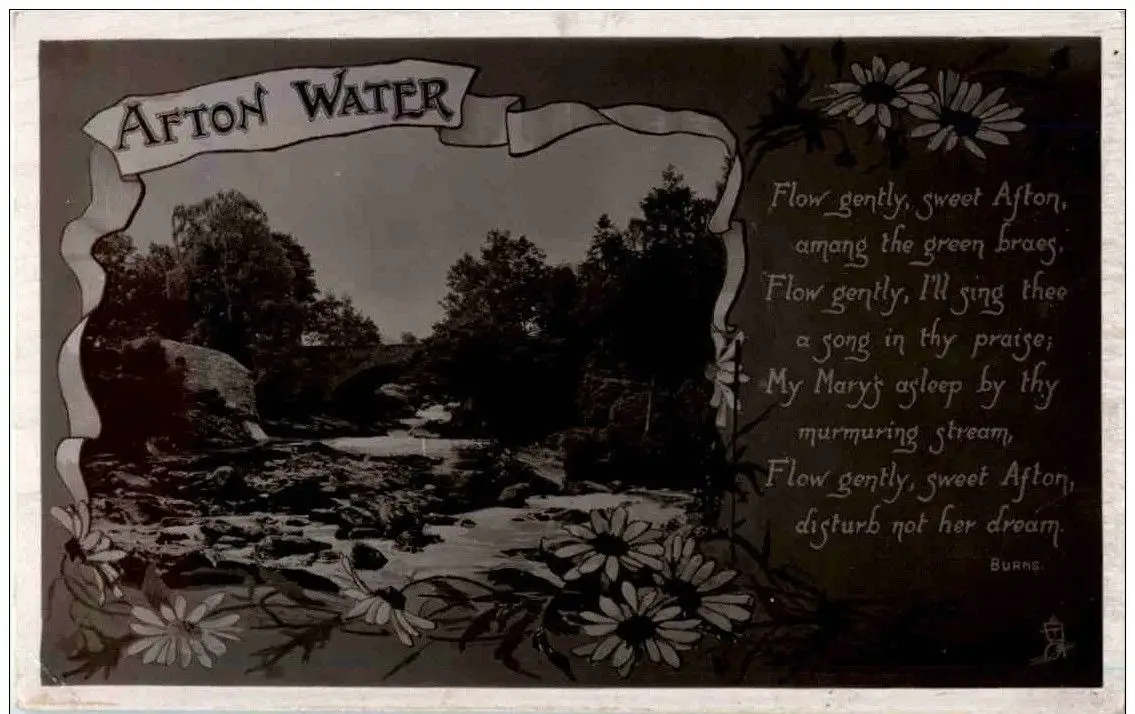 AFTON WATER
Flow gently, sweet Afton,
amang the green braes,
Flow gently, I'll sing thee
a song in thy praise;
My Mary's asleep by thy
murmuring stream,
Flow gently, sweet Afton,
disturb not her dream.
BURNS.